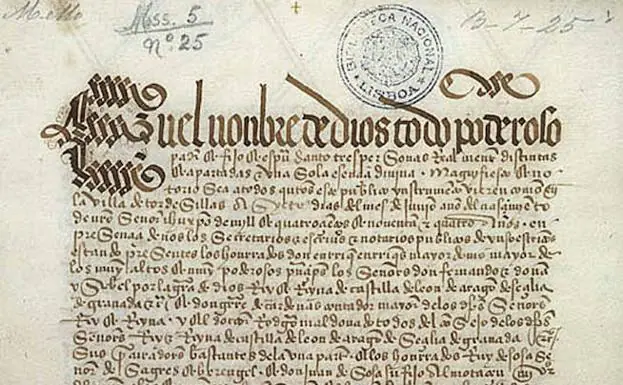 Mss. 5
Nº 25
B-7-25
BIBLIOTECA NACIONAL
LISBOA
En el nonbre de dios todo poderoso
padre & fijo & espu Santo tres personas Realmente distintas
& apartadas & una Sola esencia diuina. Magnifiesto & no
torio Sea a todos quantos este publico ynstrumento vieren como en
la villa de tordesillas A Syete dias del mes de Junio año del nasçimiento
de nro Señor ihu xpo de myll & quatroçientos & nouenta & quatro Años. en
presençia de nos los Secretarios & escriuanos & notarios publicos de yuso escriptos
estando presentes los honrrados don enrrique enrriques mayordomo mayor de
los muy altos & muy poderosos prinçipes los Señores don fernando & doña
ysabel por la graçia de dios Rey & Reyna de castilla de leon de aragon de seçilia
de granada & don gutierre de cardenas contador mayor de los dichos Señores
Rey & Reyna. y el doctor Rodrigo maldonado todos del consejo de los dichos
Señores Rey & Reyna de castilla de leon de aragon de Seçilia de granada
Sus procuradores bastantes de la una parte. & los honrrados Ruy de sosa Se
ñor de Sagres & berengel & don Juan de Sosa Su fijo Almotaçen